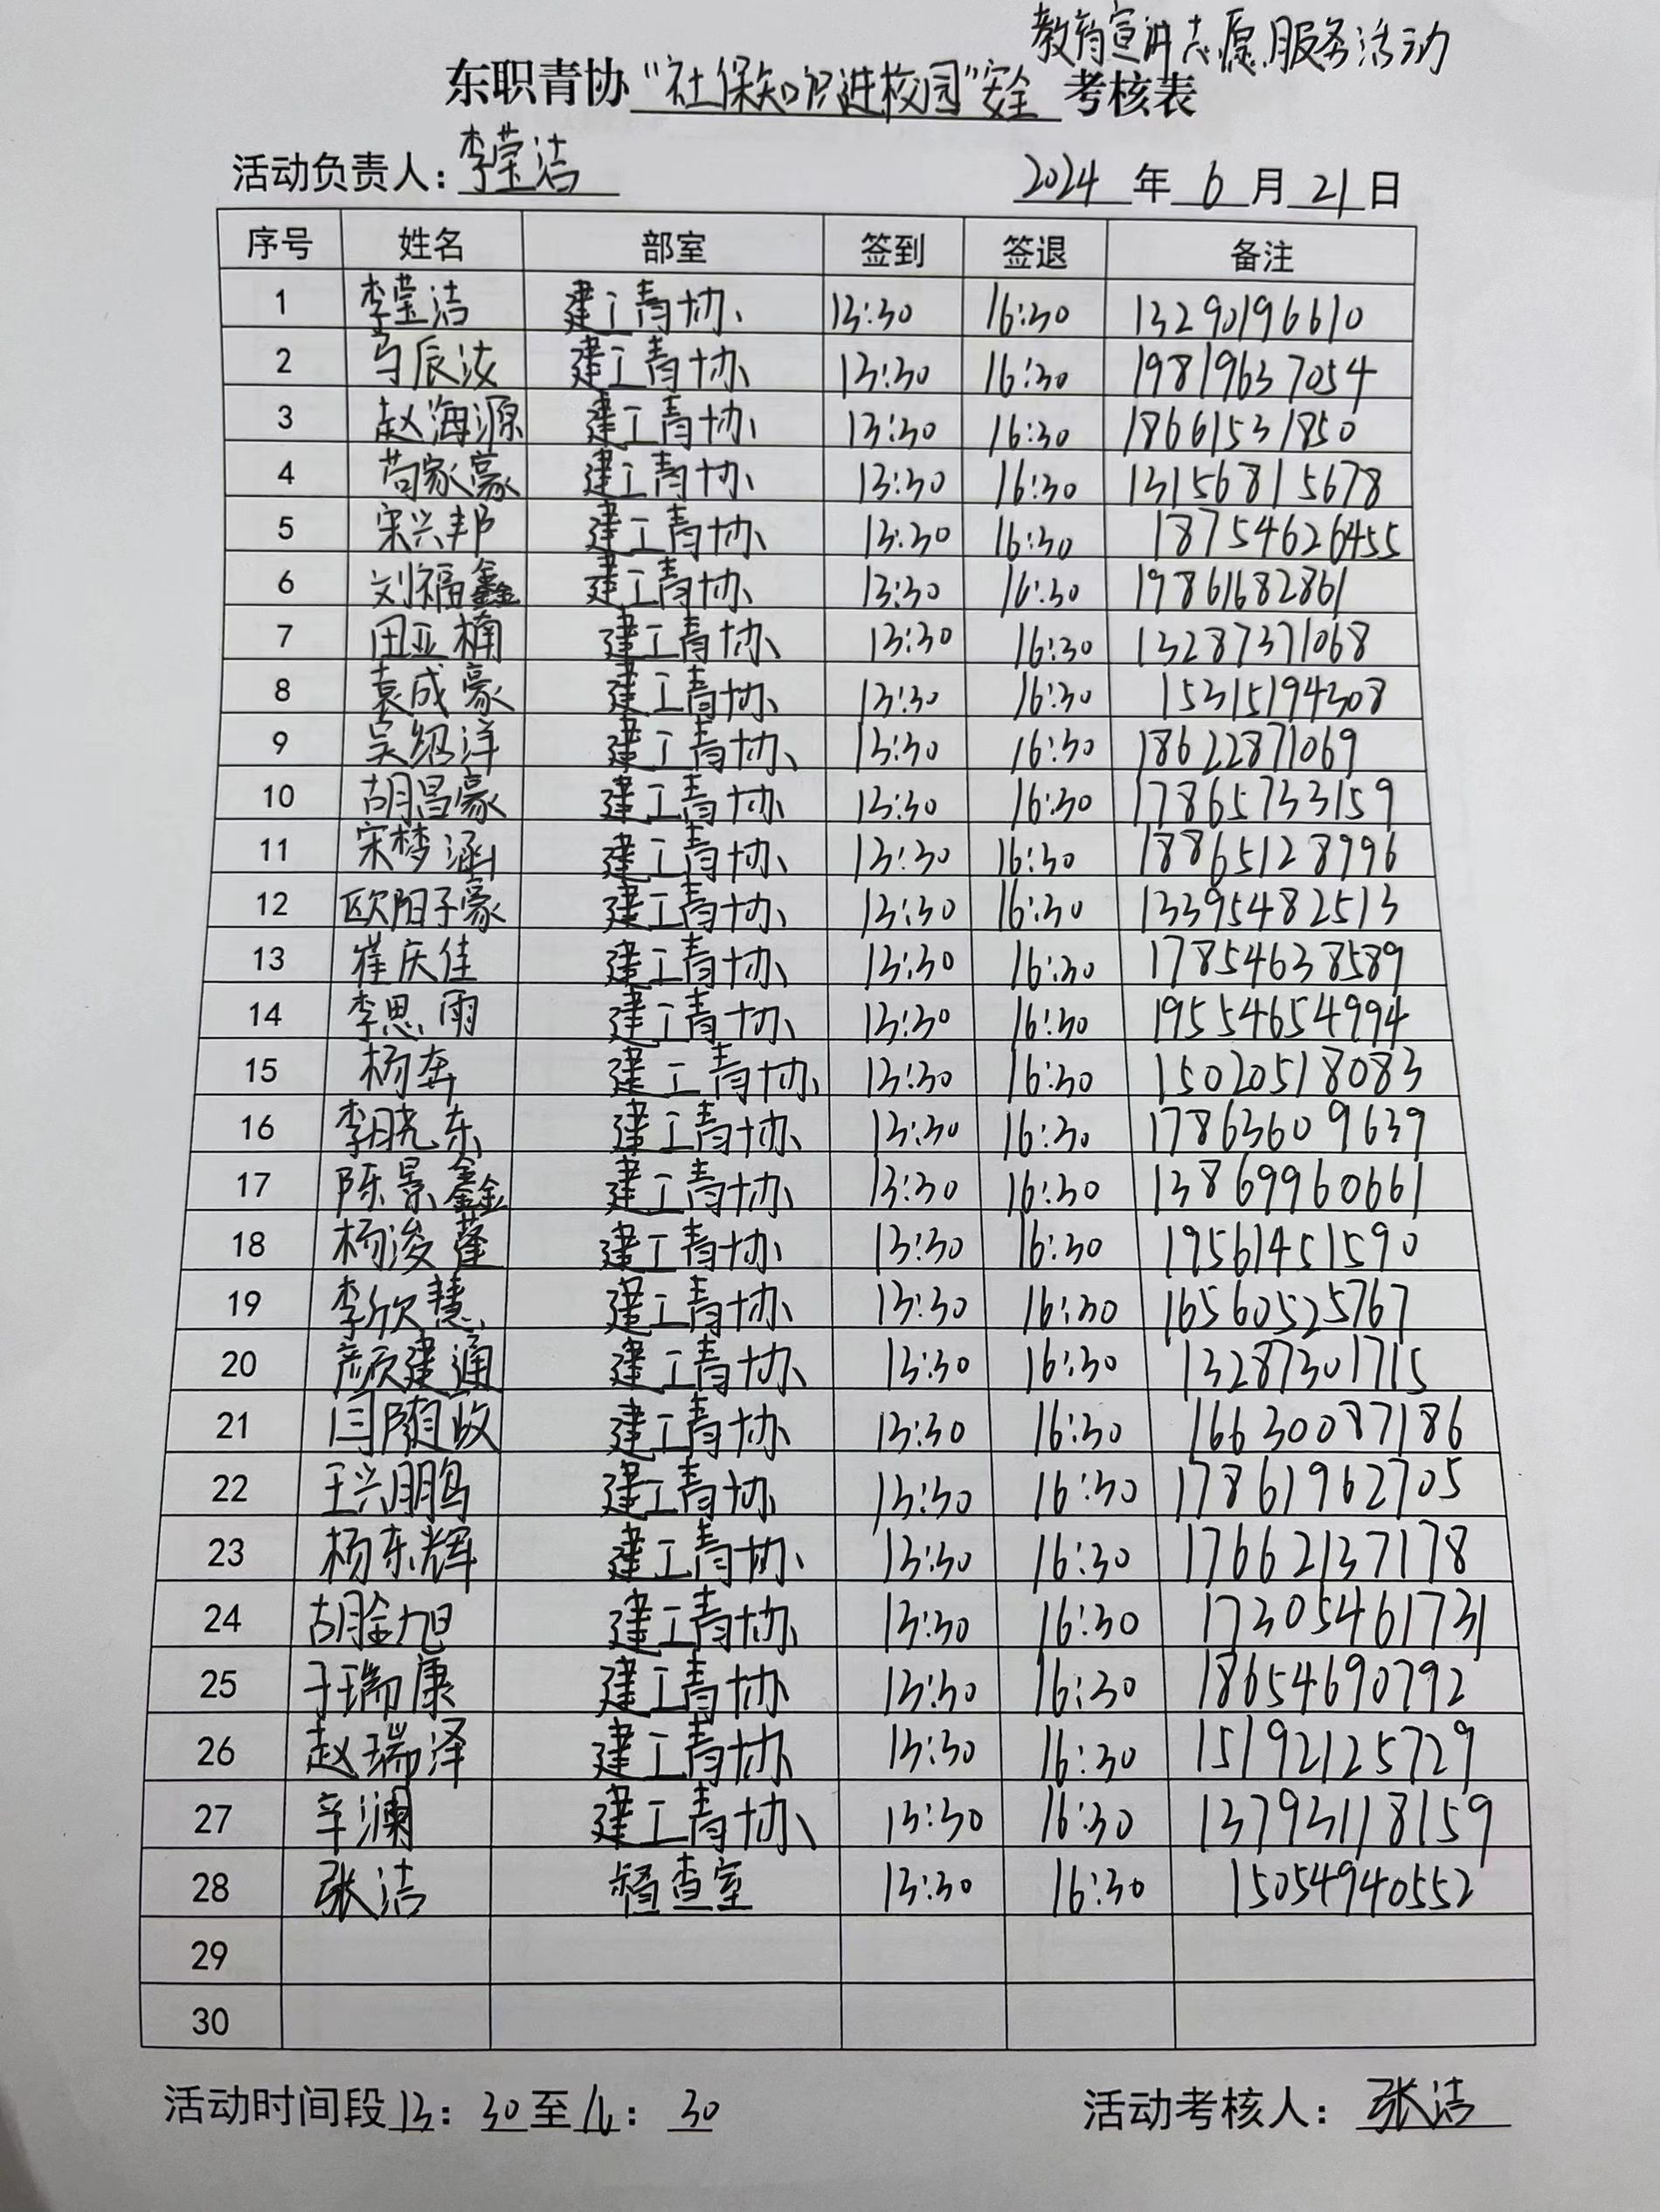 教育宣讲志愿服务活动
东职青协“社保知识进校园”安全考核表
活动负责人：李莹洁 2024年6月21日
序号 姓名 部室 签到 签退 备注
1 李莹洁 建工青协 13:30 16:30 13290196610
2 马辰汝 建工青协 13:30 16:30 19819637054
3 赵海源 建工青协 13:30 16:30 18661531850
4 苟家豪 建工青协 13:30 16:30 13156815678
5 宋兴邦 建工青协 13:30 16:30 18754626455
6 刘福鑫 建工青协 13:30 16:30 19861682861
7 田亚楠 建工青协 13:30 16:30 13287371068
8 袁成豪 建工青协 13:30 16:30 15315194308
9 吴绍洋 建工青协 13:30 16:30 18622871069
10 胡昌豪 建工青协 13:30 16:30 17865733159
11 宋梦涵 建工青协 13:30 16:30 18865128996
12 欧阳子豪 建工青协 13:30 16:30 13395482513
13 崔庆佳 建工青协 13:30 16:30 17854638589
14 李思雨 建工青协 13:30 16:30 19554654994
15 杨奔 建工青协 13:30 16:30 15020518083
16 李晓东 建工青协 13:30 16:30 17863609639
17 陈景鑫 建工青协 13:30 16:30 13869960661
18 杨浚蓬 建工青协 13:30 16:30 19561451590
19 李欣慧 建工青协 13:30 16:30 16560525767
20 颜建通 建工青协 13:30 16:30 13287301715
21 闫随政 建工青协 13:30 16:30 16630087186
22 王兴鹏 建工青协 13:30 16:30 17861962705
23 杨东辉 建工青协 13:30 16:30 17662137178
24 胡金旭 建工青协 13:30 16:30 17305461731
25 于瑞康 建工青协 13:30 16:30 18654690792
26 赵瑞泽 建工青协 13:30 16:30 15192125729
27 辛澜 建工青协 13:30 16:30 13793118159
28 张洁 督查室 13:30 16:30 15054940552
29
30
活动时间段13：30至16：30 活动考核人：张洁